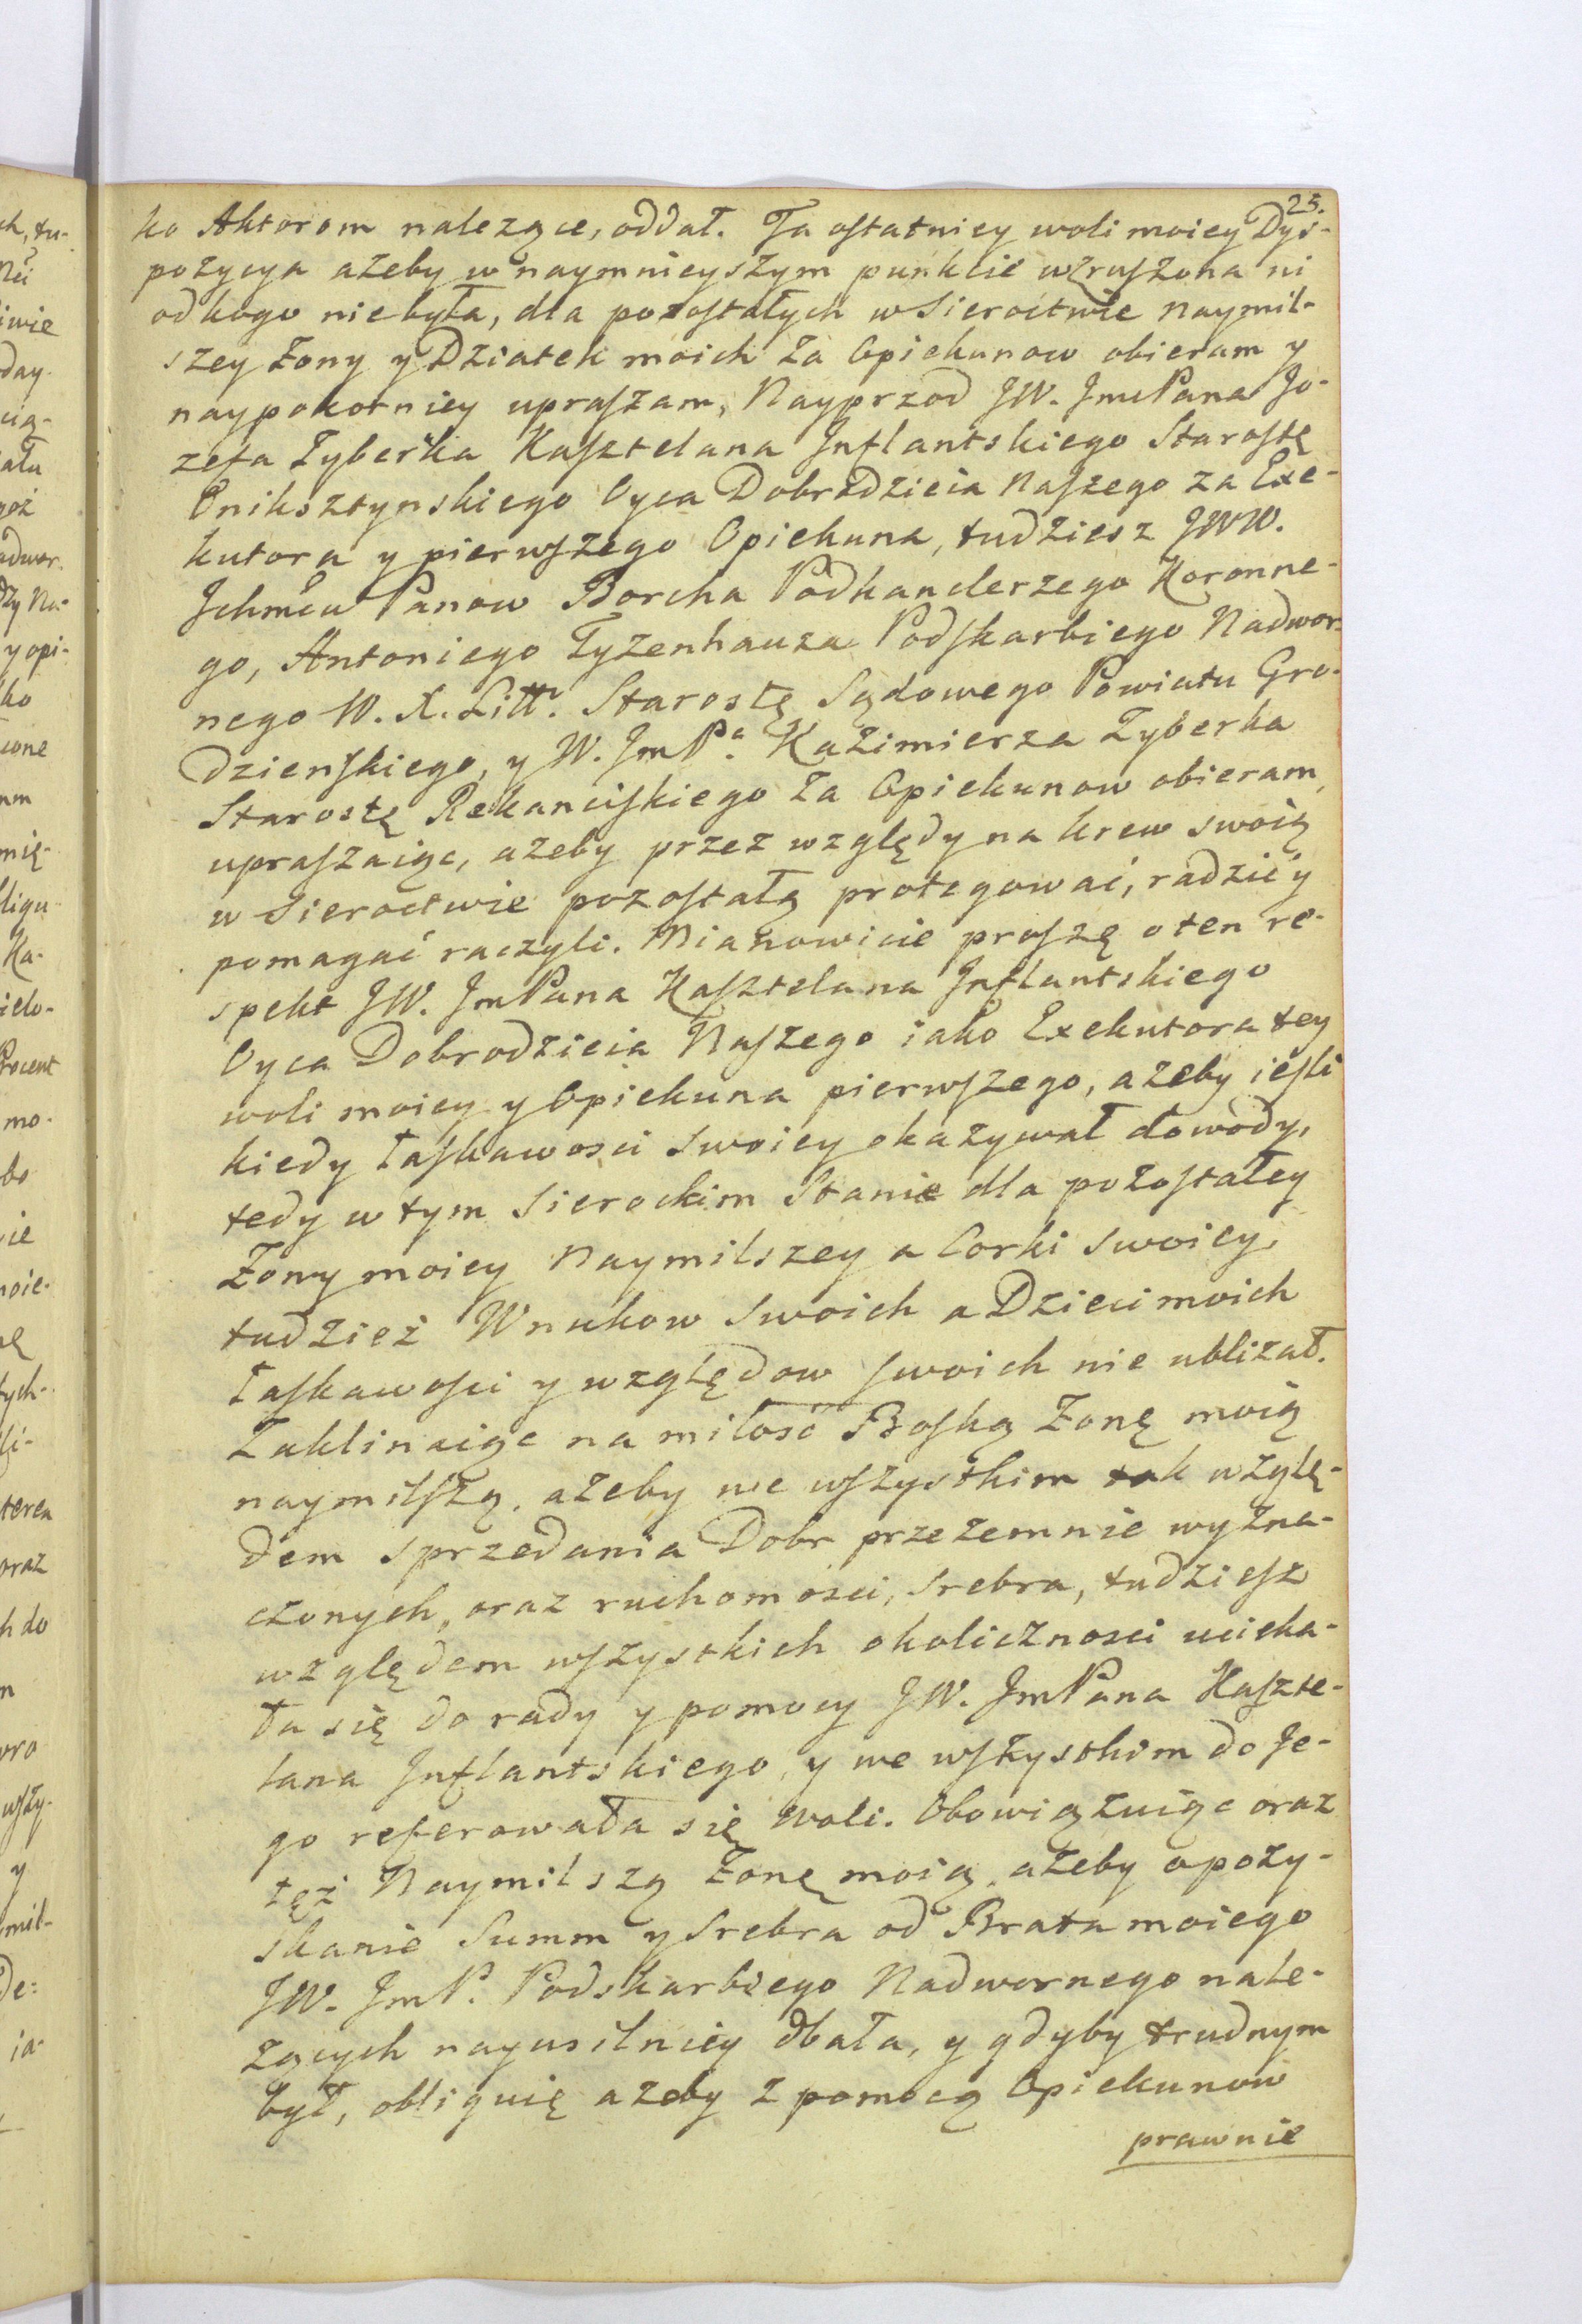 25.
ko Aktorom należące, oddał. Ta ostatniey woli moiey Dys-
pozycya ażeby w naymnieyszym punkcie wzruszona ni
od kogo niebyła, dla pozostałych w Sieroctwie naymil-
szey Żony y Dziatek moich za Opiekunow obieram y
naypokorniey upraszam, Nayprzod JW. JmcPana Jo-
zefa Zyberka Kasztelana Inflantskiego Starostę
Oniksztynskiego Oyca Dobrodzieia Naszego za Exe-
kutora y pierwszego Opiekuna, tudziesz JWW.
Ichmćw Panow Borcha Podkanclerzego Koronne-
go, Antoniego Tyzenhauza Podskarbiego Nadwor-
nego W. X. Litt. Starostę Sądowego Powiatu Gro-
dzienskiego, y W. JmPa. Kazimierza Zyberka
Starostę Rekanciskiego za Opiekunow obieram,
upraszaiąc, ażeby przez względy na krew swoią
w Sieroctwie pozostałą protegować, radzić y
pomagać raczyli. Mianowicie proszę o ten re-
spekt JW. JmPana Kasztelana Inflantskiego
Oyca Dobrodzieia Naszego iako Exekutora tey
woli moiey y Opiekuna pierwszego, ażeby ieśli
kiedy łaskawosci swoiey okazywał dowody,
tedy w tym Sierockim Stanie dla pozostałey
Żony moiey Naymilszey a Corki swoiey,
tudzież Wnukow Swoich a Dzieci moich
łaskawosci y względow swoich nie ubliżał.
Zaklinaiąc na miłość Boską Żonę moią
naymilszą, ażeby we wszystkim tak wzglę-
dem sprzedania Dobr przezemnie wyzna-
czonych, oraz ruchomosci, srebra, tudziesz
względem wszystkich okolicznosci ucieka-
ła się do rady y pomocy JW. JmPana Kaszte-
lana Inflantskiego, y we wszystkim do Je-
go referowała się woli. Obowiązuiąc oraz
tęż Naymilszą Żonę moią, ażeby o pozy-
skanie Summ y Srebra od Brata moiego
JW. JmP. Podskarbiego Nadwornego nale-
żących nayusilniey dbała, y gdyby trudnym
był, obliguię ażeby z pomocą Opiekunow
prawnie